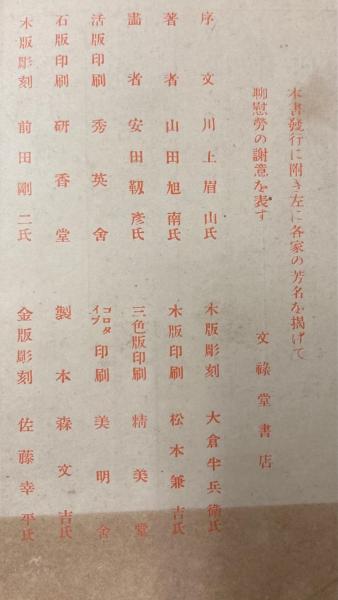 本書發行に附き左に各家の芳名を揭げて
聊慰勞の謝意を表す
文祿堂書店
序文 川上眉山氏
木版彫刻 大倉半兵衛氏
著者 山田旭南氏
木版印刷 松本兼吉氏
畫者 安田靫彥氏
三色版印刷 精美堂
活版印刷 秀英舍
コロタイプ印刷 美明舍
石版印刷 研香堂
製本 森文吉氏
木版彫刻 前田剛二氏
金版彫刻 佐藤幸平氏